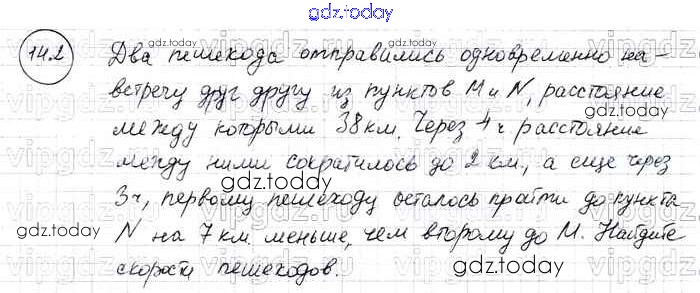 gdz.today
14.2 Два пешехода отправились одновременно на-
gdz.today
встречу друг другу из пунктов М и N, расстояние
между которыми 38 км. Через 4 ч расстояние
vipgdz.ru vipgdz.ru
между ними сократилось до 2 км, а еще через
gdz.today
3 ч, первому пешеходу осталось пройти до пункта
gdz.today
N на 7 км. меньше, чем второму до М. Найдите
скорости пешеходов.
gdz.today